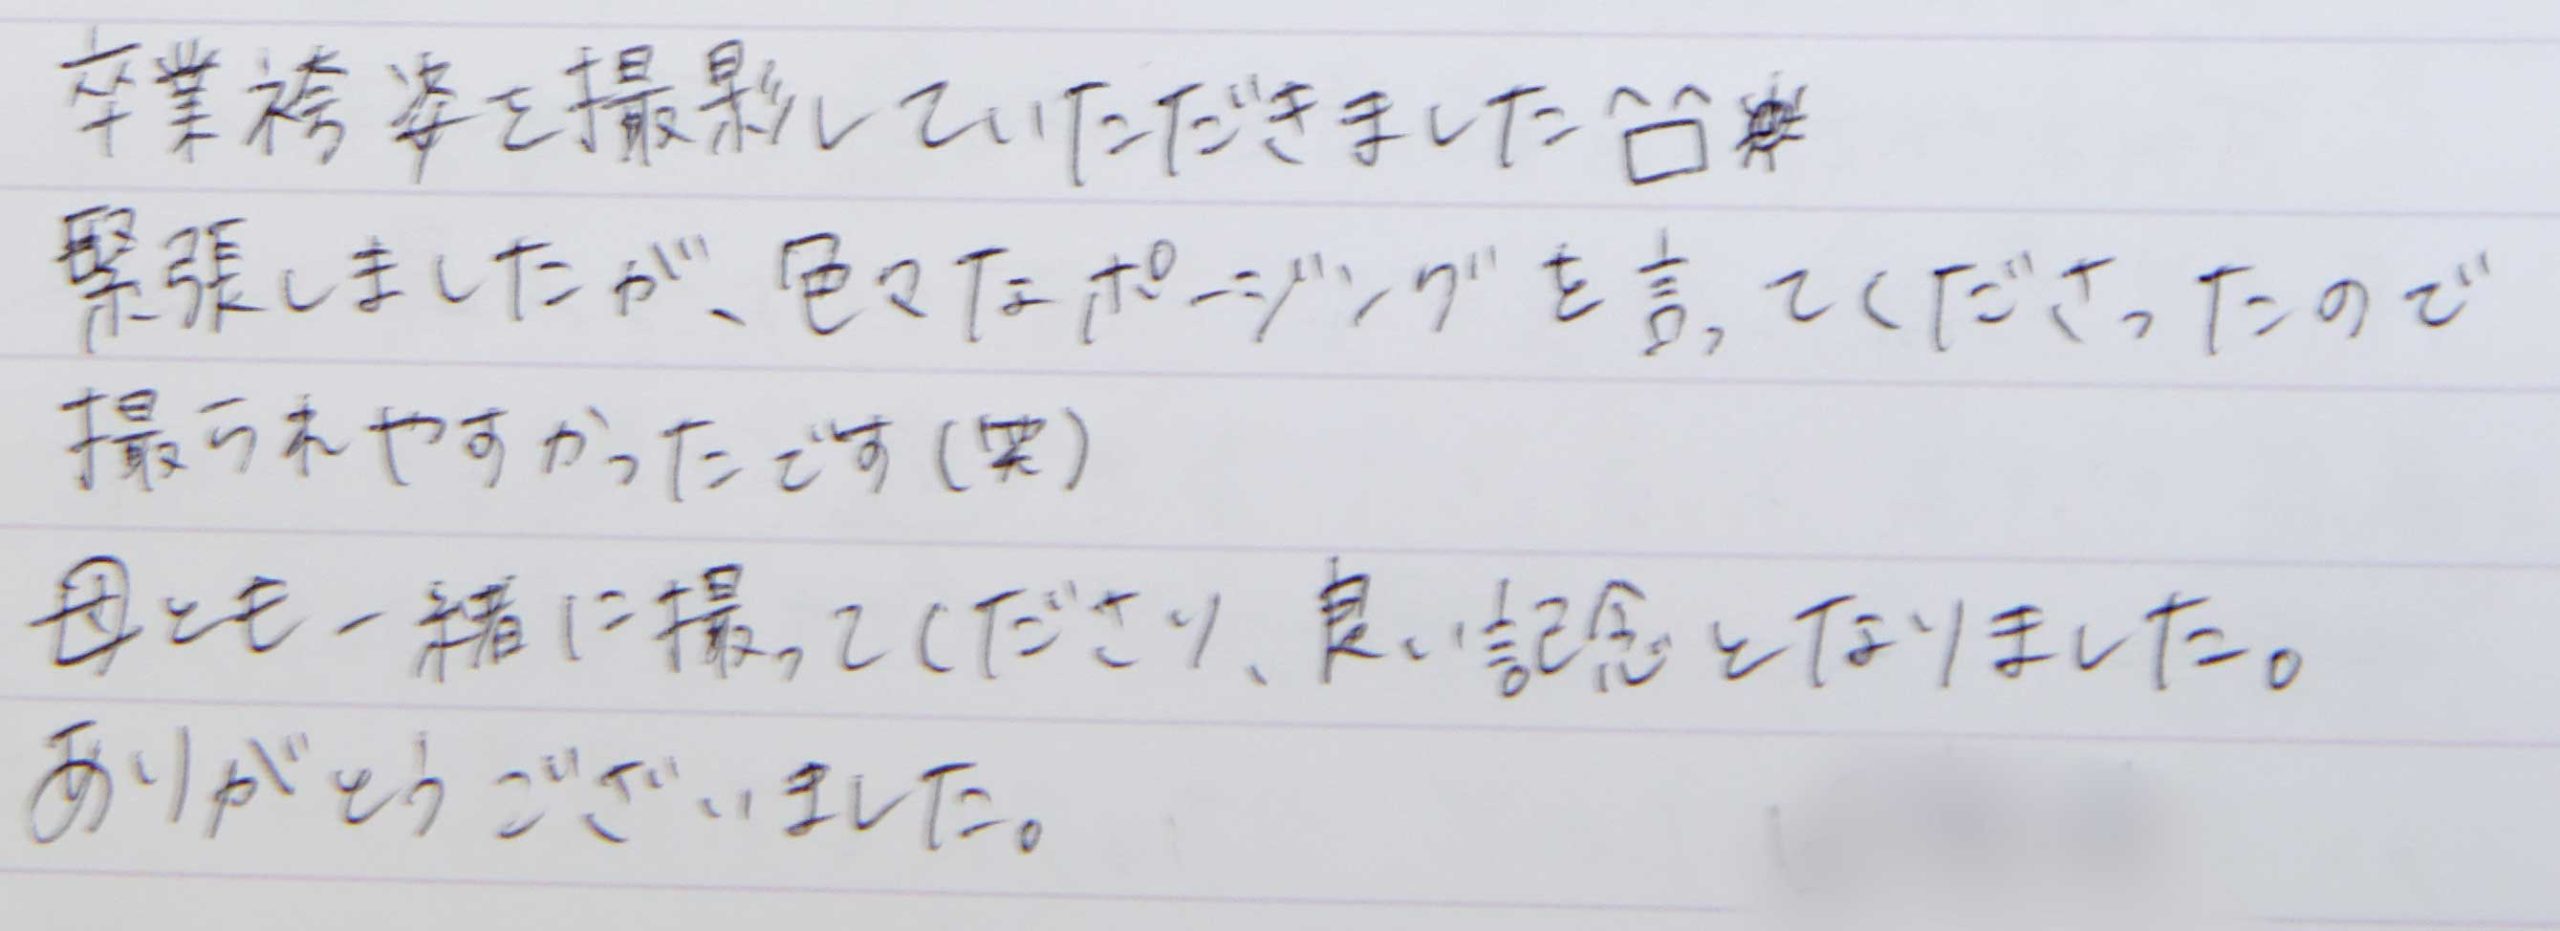 卒業袴姿を撮影していただきました^□^
緊張しましたが、色々なポージングを言ってくださったので
撮られやすかったです(笑)
母とも一緒に撮ってくださり、良い記念となりました。
ありがとうございました。